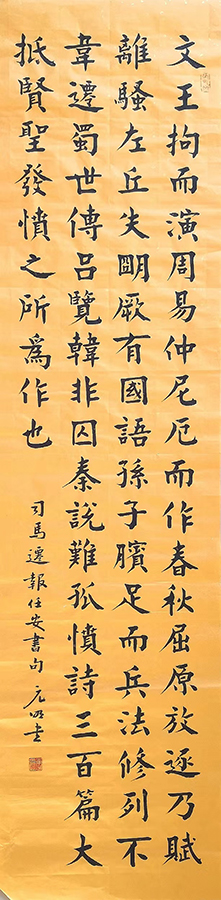 文王拘而演周易仲尼厄而作春秋屈原放逐乃賦
離騷左丘失明厥有國語孫子臏足而兵法修列不
韋遷蜀世傳呂覽韓非囚秦說難孤憤詩三百篇大
抵賢聖發憤之所爲作也
司馬遷報任安書句 元明书